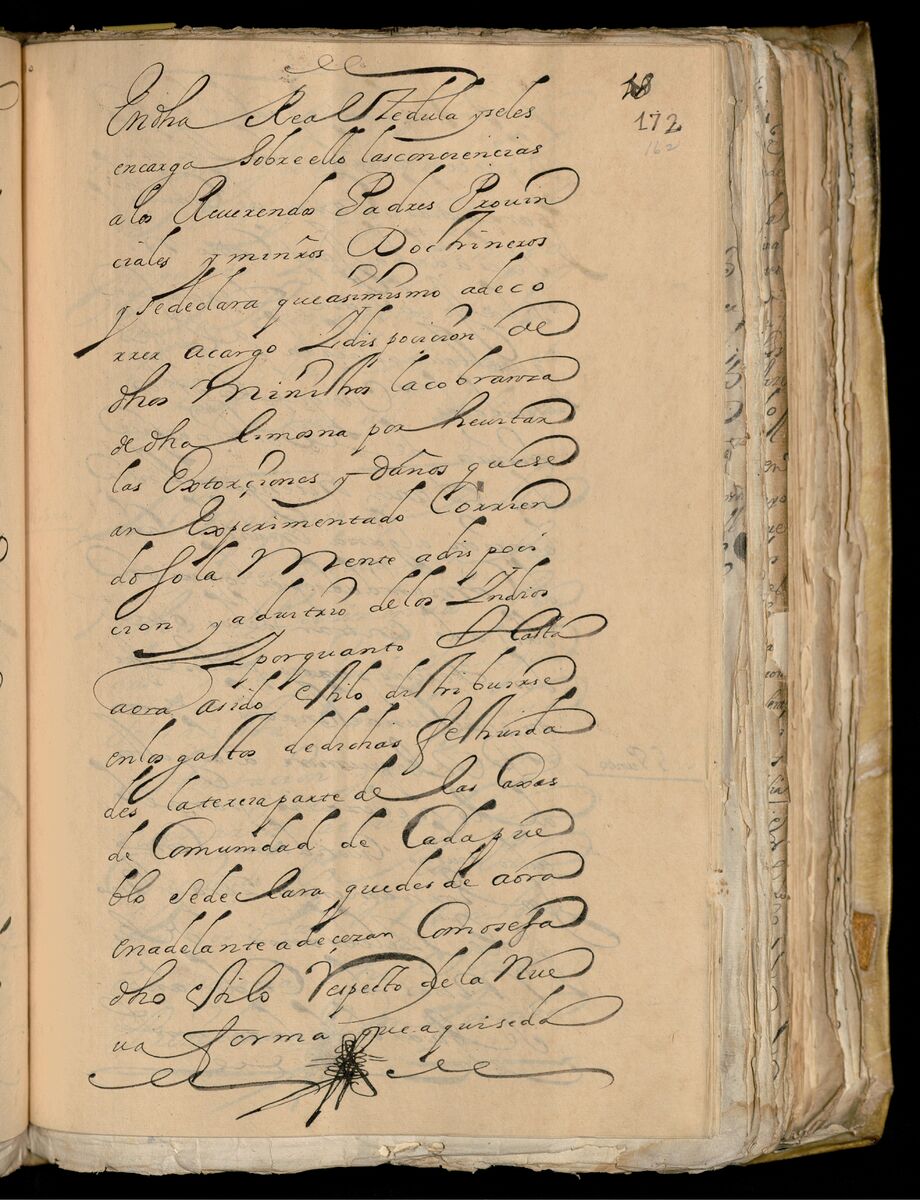 172
162
En dha Real Zedula y seles
encarga Sobre ello las conciencias
a los Reuerendos Padres Prouin
ciales y minros Doctrineros
y se declara que asimismo a de co
rrer a cargo Y disposicion de
dhos Ministros la cobranza
de dha limosna por heuitar
las Extorciones y daños que se
an Experimentado Corrien
do so la Mente a dis poci
cion y aduitrio de los Yndios
Y por quanto Hasta
aora a sido estilo distribuirse
en los gastos de dichas festiuida
des la tercia parte de las Caxas
de Comunidad de Cada pue
blo se declara que des de aora
en adelante a de cezar Como sesa
dho Stilo Respecto de la Nue
ua forma que aqui se da